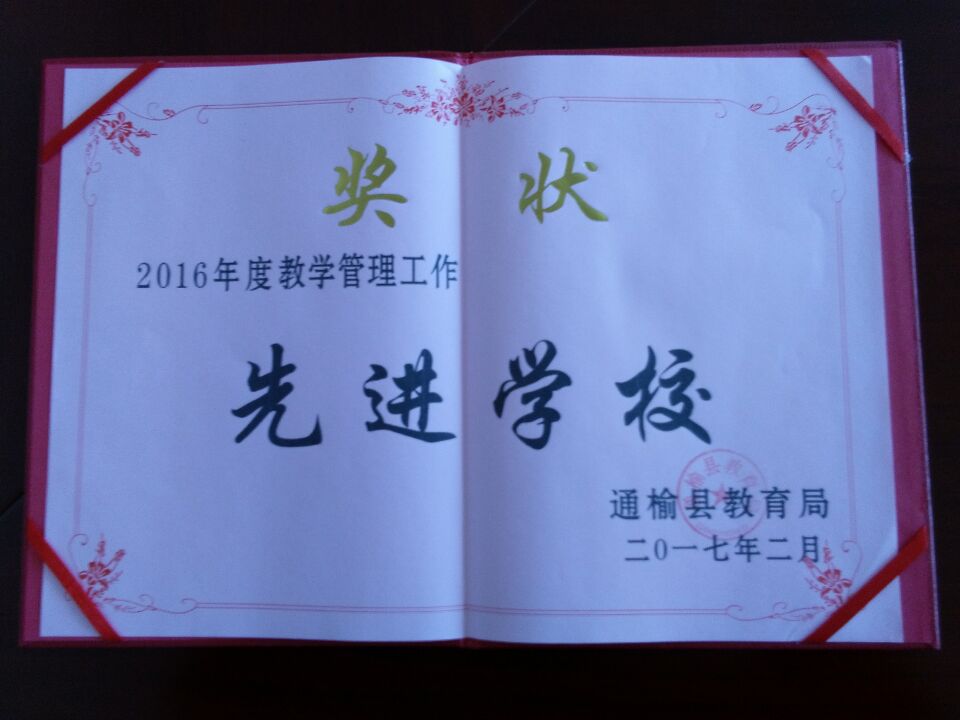 奖状
2016年度教学管理工作
先进学校
通榆县教育局
二0一七年二月